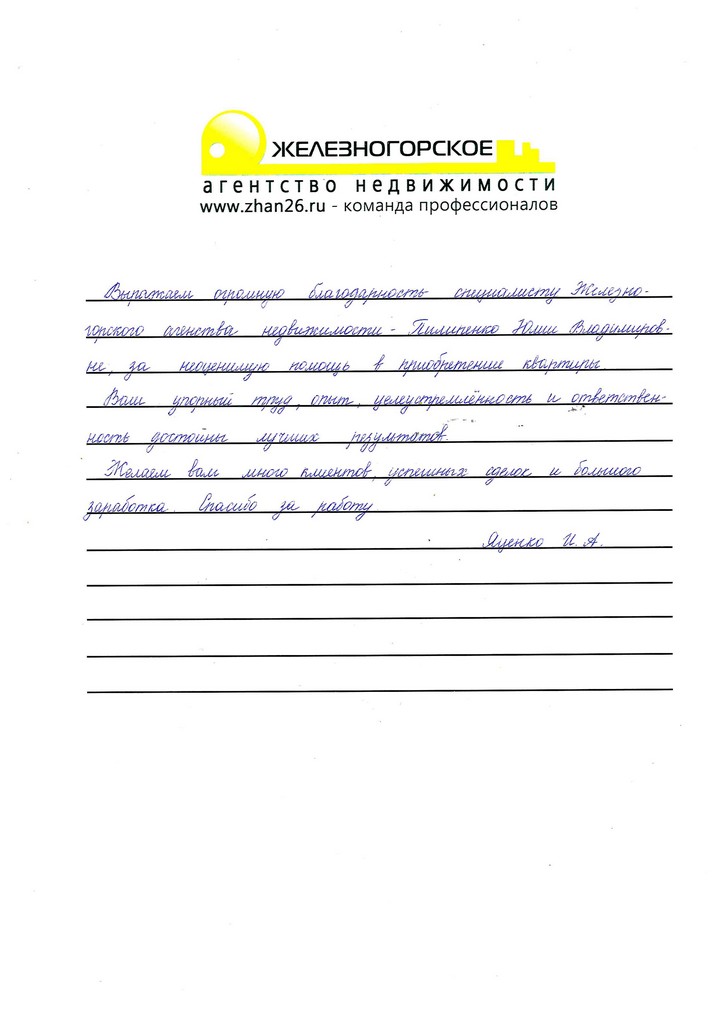 ЖЕЛЕЗНОГОРСКОЕ
агентство недвижимости
www.zhan26.ru - команда профессионалов
Выражаем огромную благодарность специалисту Железно-
горского агенства недвижимости - Пилипенко Юлии Владимиров-
не, за неоценимую помощь в приобретение квартиры.
Ваш упорный труд, опыт, целеустремлённость и ответствен-
ность достойны лучших результатов.
Желаем вам много клиентов, успешных сделок и большого
заработка. Спасибо за работу
Яценко И. А.